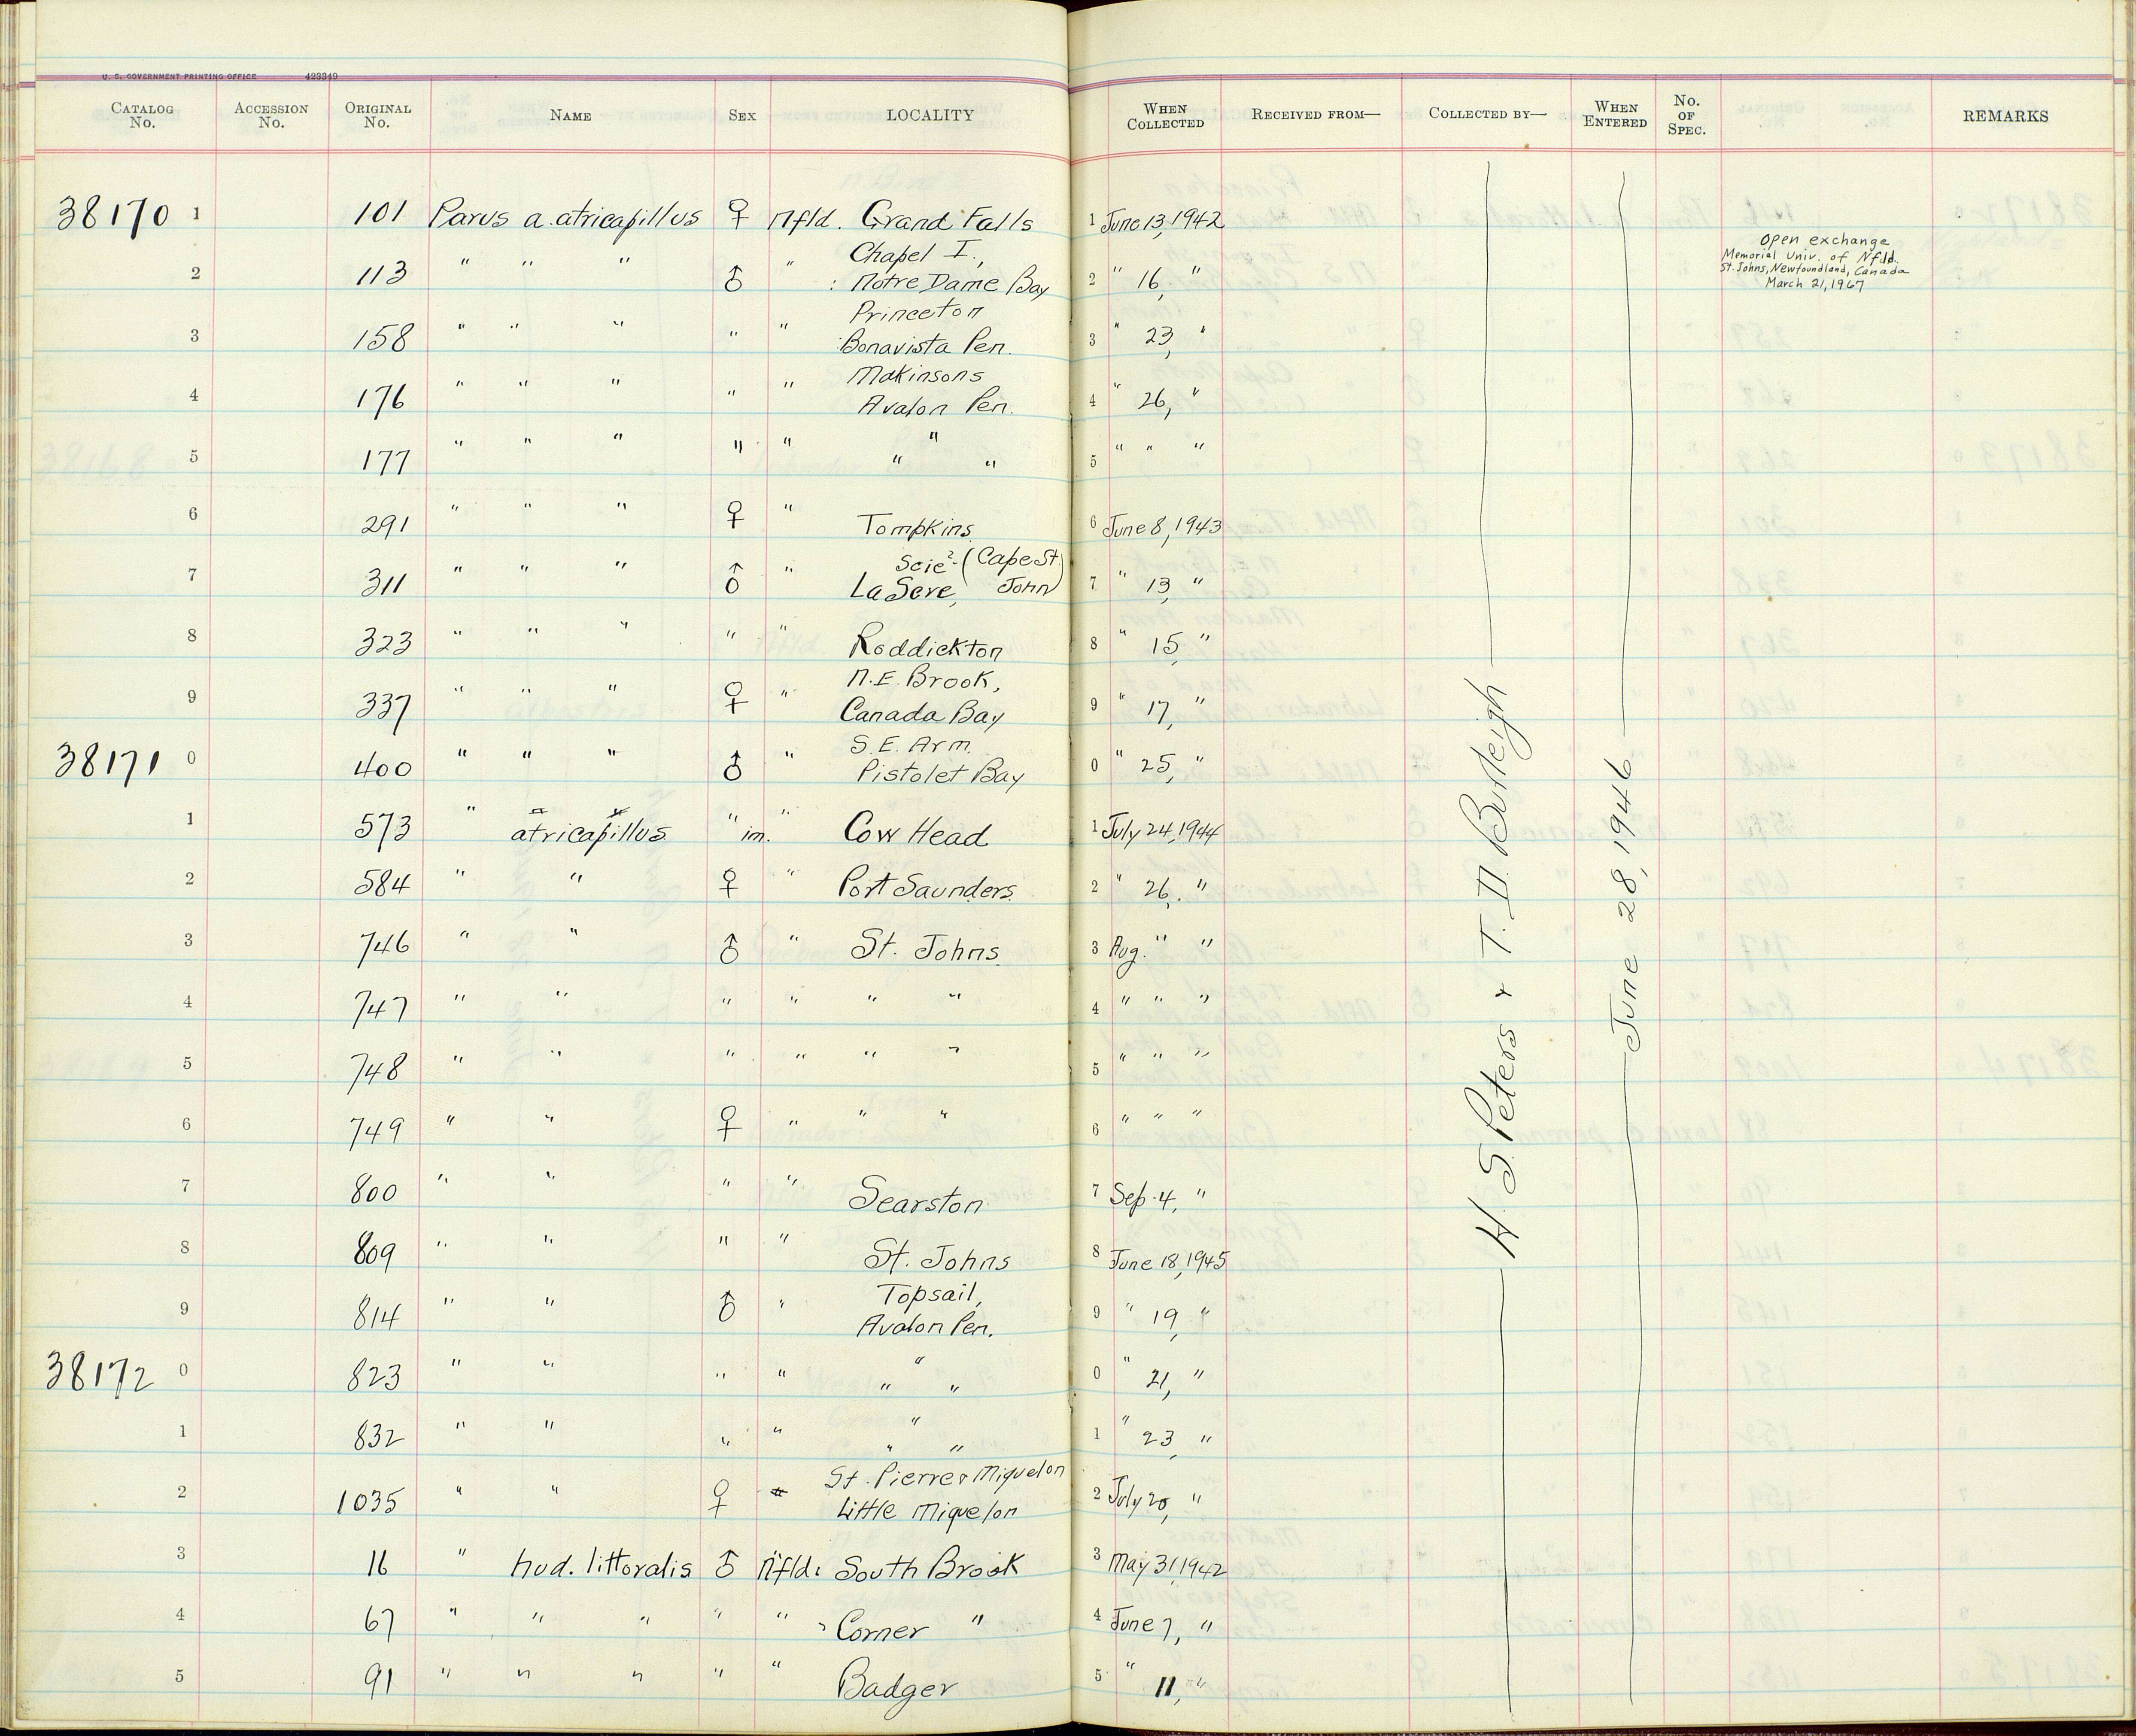 U. S. GOVERNMENT PRINTING OFFICE 423349
CATALOG No. ACCESSION No. ORIGINAL No. NAME SEX LOCALITY WHEN COLLECTED RECEIVED FROM— COLLECTED BY— WHEN ENTERED No. OF SPEC. REMARKS
38170 1 101 Parus a. atricapillus ♀ Nfld. Grand Falls 1 June 13, 1942
Chapel I.,
2 113 " " " ♂ " : Notre Dame Bay 2 " 16, "
Open exchange
Memorial Univ. of Nfld.
St. Johns, Newfoundland, Canada
March 21, 1967
Princeton
3 158 " " " " " Bonavista Pen. 3 " 23, "
Makinsons
4 176 " " " " " Avalon Pen. 4 " 26, "
"
5 177 " " " " " " " 5 " " "
6 291 " " " ♀ " Tompkins 6 June 8, 1943
Scie? (Cape St.
7 311 " " " ♂ " La Sere, John) 7 " 13, "
8 323 " " " " " Roddickton 8 " 15, "
N.E. Brook,
9 337 " " " ♀ " Canada Bay 9 " 17, "
S.E. Arm
38171 0 400 " " " ♂ " Pistolet Bay 0 " 25, "
1 573 " atricapillus " im. " Cow Head 1 July 24, 1944
2 584 " " ♀ " Port Saunders 2 " 26, "
3 746 " " ♂ " St. Johns 3 Aug. " "
4 747 " " " " " " 4 " " "
5 748 " " " " " " 5 " " "
6 749 " " ♀ " " " 6 " " "
7 800 " " " " Searston 7 Sep. 4, "
8 809 " " " " St. Johns 8 June 18, 1945
Topsail,
9 814 " " ♂ " Avalon Pen. 9 " 19, "
"
38172 0 823 " " " " " " 0 " 21, "
"
1 832 " " " " " " 1 " 23, "
St. Pierre & Miquelon
2 1035 " " ♀ Little Miquelon 2 July 20, "
3 16 " hud. littoralis ♂ Nfld: South Brook 3 May 31, 1942
4 67 " " " " " Corner " 4 June 7, "
5 91 " " " " " Badger 5 " 11, "
H. S. Peters & T. D. Burleigh
June 28, 1946